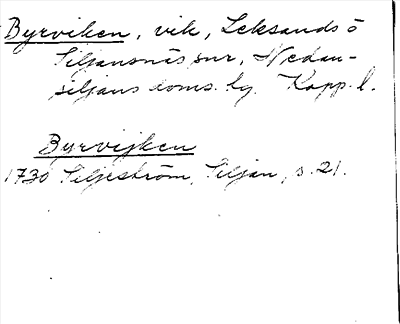 Byrviken, vik, Leksands o
Siljansnäs snr, Nedan-
siljans doms. lg. Kopp. l.
Byrvijken
1730 Siljeström, Siljan, s. 21.